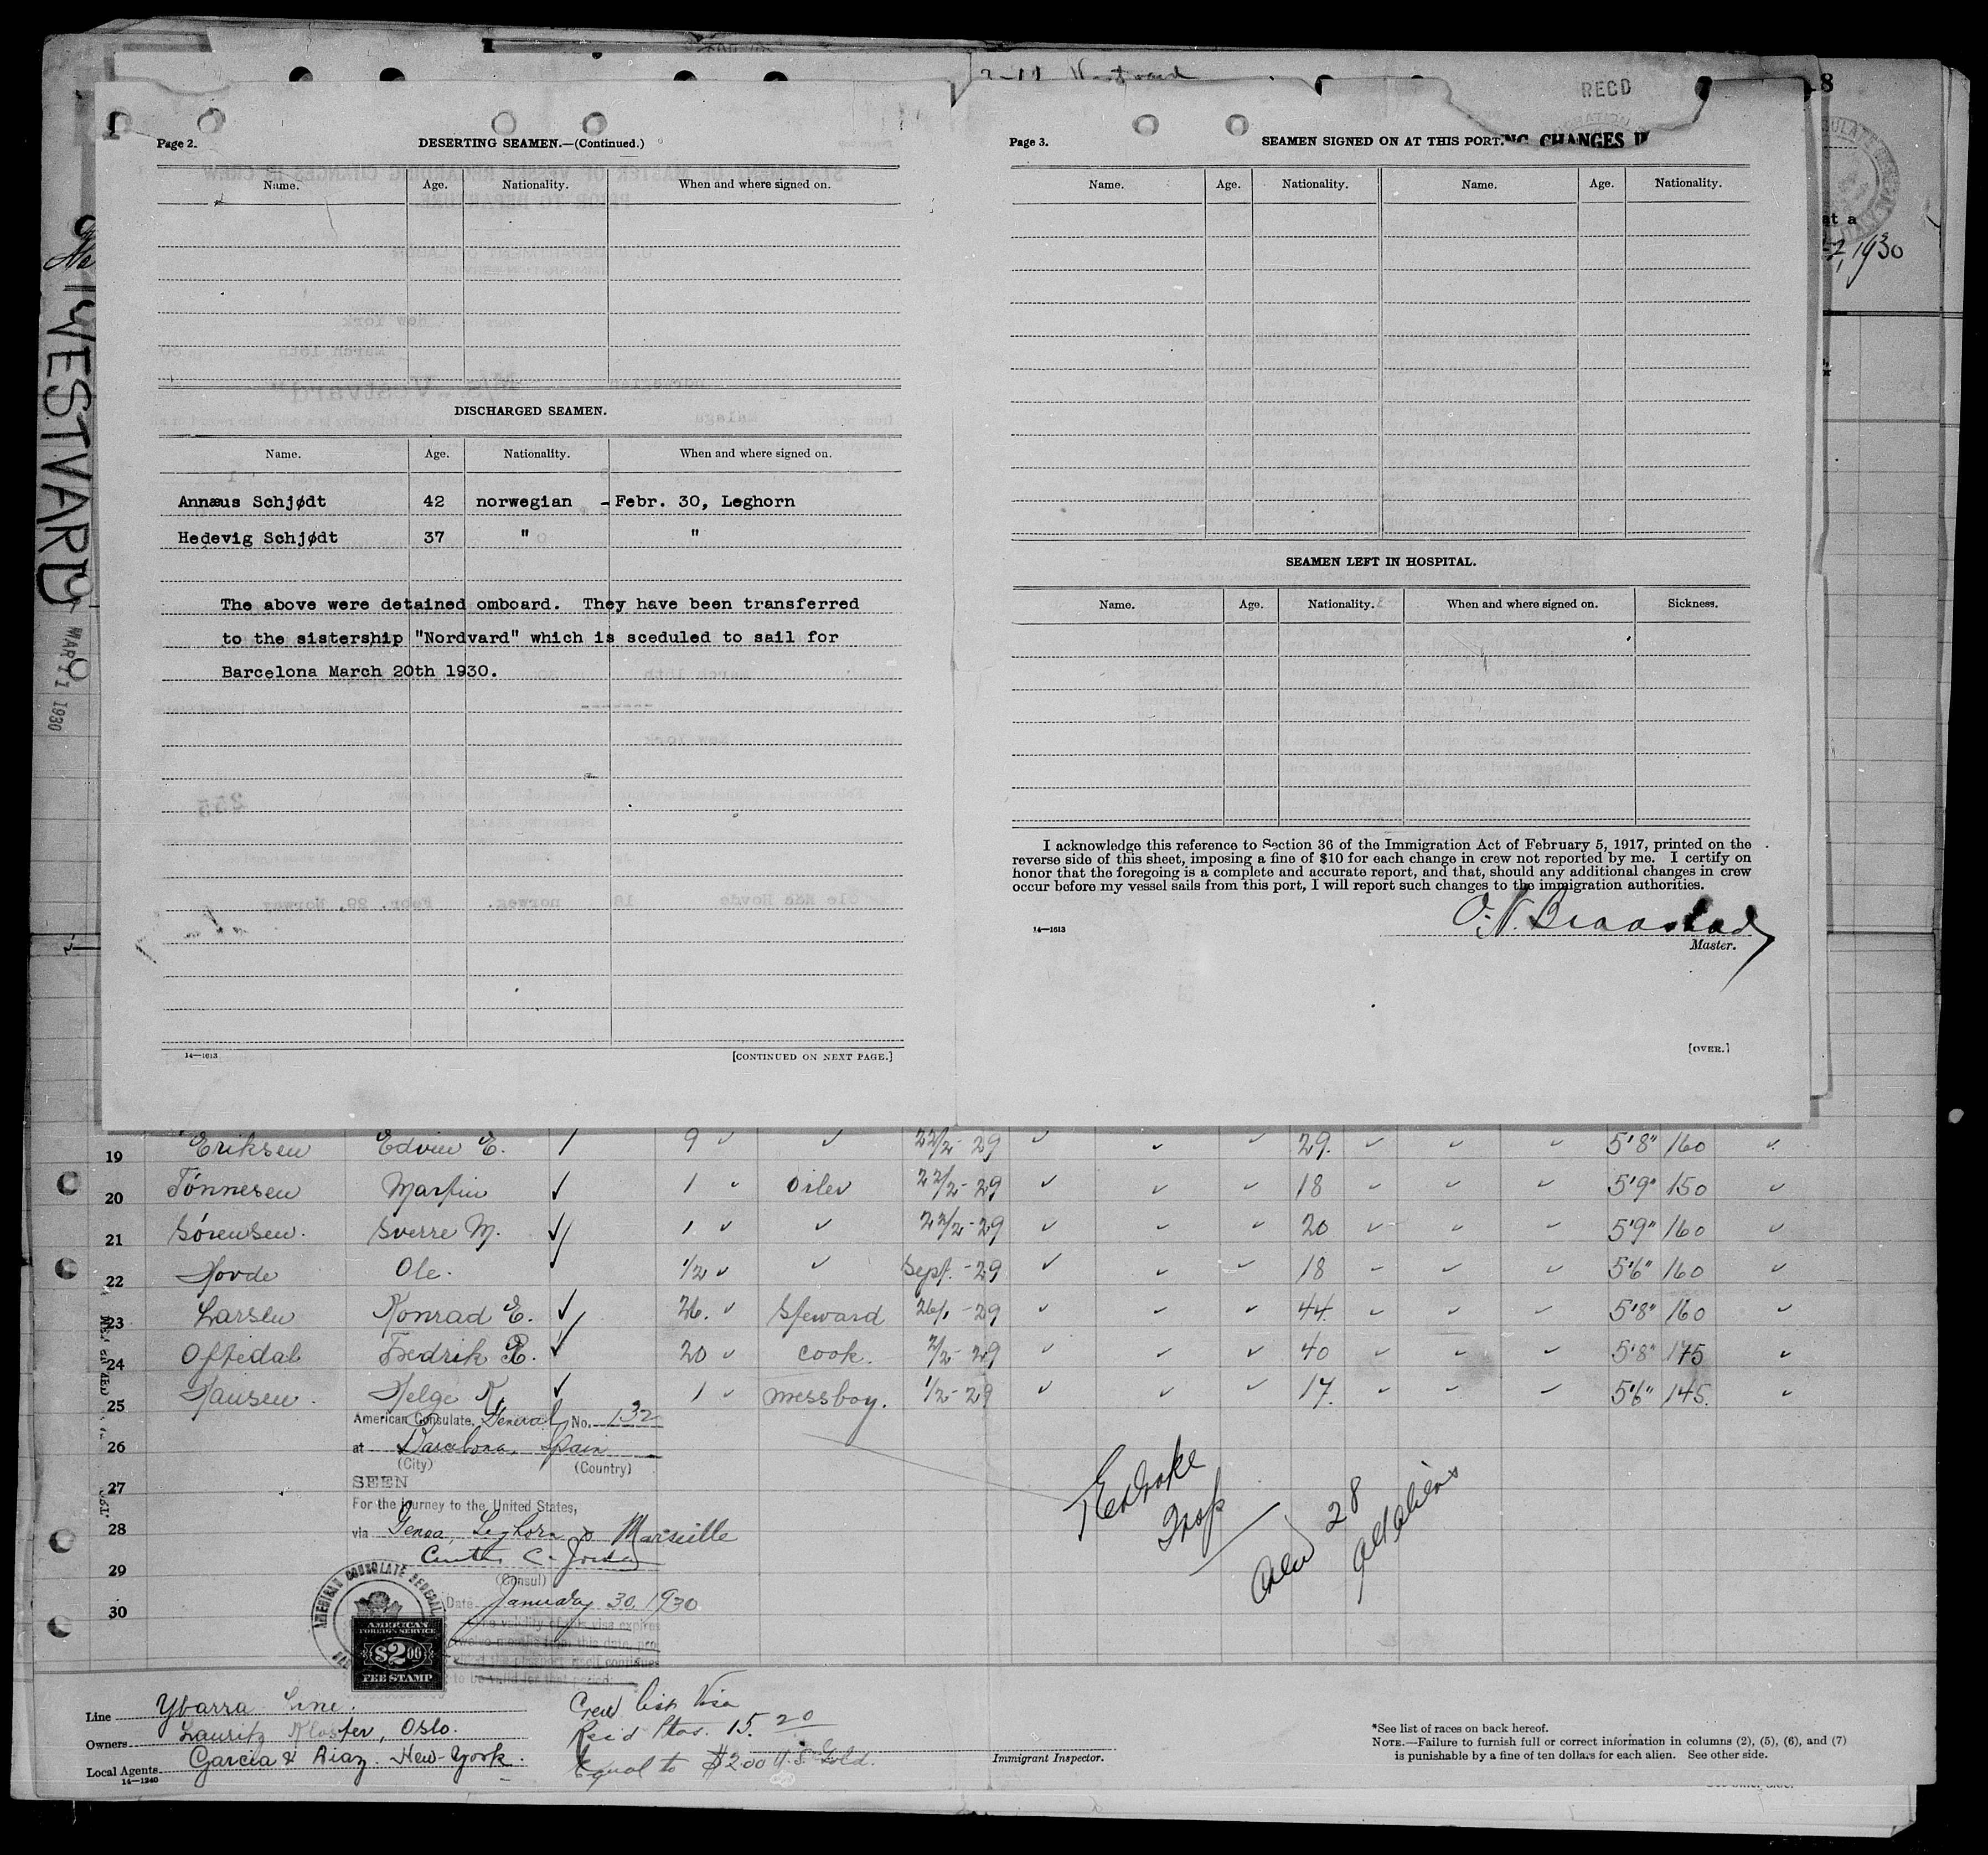 RECD
8
at a
2, 1930
WESTVARD
MAR 11 1930
Page 2.
DESERTING SEAMEN.—(Continued.)
Name. Age. Nationality. When and where signed on.
DISCHARGED SEAMEN.
Name. Age. Nationality. When and where signed on.
Annæus Schjødt 42 norwegian -Febr. 30, Leghorn
Hedevig Schjødt 37 " "
The above were detained omboard. They have been transferred
to the sistership "Nordvard" which is sceduled to sail for
Barcelona March 20th 1930.
14—1613
[CONTINUED ON NEXT PAGE.]
Page 3.
SEAMEN SIGNED ON AT THIS PORT.
NG CHANGES I
Name. Age. Nationality. Name. Age. Nationality.
SEAMEN LEFT IN HOSPITAL.
Name. Age. Nationality. When and where signed on. Sickness.
I acknowledge this reference to Section 36 of the Immigration Act of February 5, 1917, printed on the
reverse side of this sheet, imposing a fine of $10 for each change in crew not reported by me. I certify on
honor that the foregoing is a complete and accurate report, and that, should any additional changes in crew
occur before my vessel sails from this port, I will report such changes to the immigration authorities.
O. N. Braastad
14—1613
Master.
[OVER.]
19 Eriksen Edvin E. 9 22/2-29 29. 5'8" 160
20 Tönnesen Martin 1 oiler 22/2-29 18 5'9" 150
21 Sörensen. Sverre M. 1 22/2-29 20 5'9" 160
22 Hovde Ole. 1/2 Sept.-29 18 5'6" 160
23 Larsen Konrad E. 26. Steward 26/1-29 44. 5'8" 160
24 Offedal Fredrik R. 20 cook. 2/2-29 40 5'8" 175
25 Hansen. Helge K. 1 messboy. 1/2-29 17. 5'6" 145.
26
27
28
29
30
American Consulate General No. 132
at Barcelona, Spain
(City) (Country)
SEEN
For the journey to the United States,
via Genoa, Leghorn & Marseille
(Consul)
Date January 30, 1930
The validity of this visa expires
twelve months from this date, pro
the passport itself continues
to be valid for that period.
AMERICAN CONSULATE GENERAL
AMERICAN
FOREIGN SERVICE
$2.00
FEE STAMP
Insp
Crew 28
all aliens
Line Ybarra Line.
Owners Lauritz Kloster, Oslo.
Local Agents Garcia & Diaz. New-York.
14—1240
Crew list Visa
Rec'd Ptas. 15.20
Equal to $2.00 U.S. Gold.
Immigrant Inspector.
*See list of races on back hereof.
NOTE.—Failure to furnish full or correct information in columns (2), (5), (6), and (7)
is punishable by a fine of ten dollars for each alien. See other side.